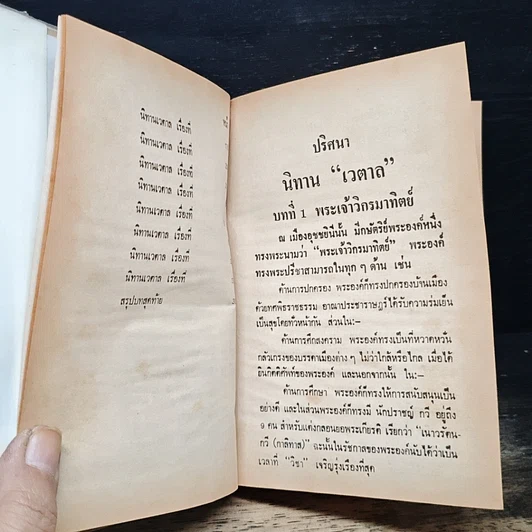 นิทานเวตาล เรื่องที่
นิทานเวตาล เรื่องที่
นิทานเวตาล เรื่องที่
นิทานเวตาล เรื่องที่
นิทานเวตาล เรื่องที่
นิทานเวตาล เรื่องที่
นิทานเวตาล เรื่องที่
นิทานเวตาล เรื่องที่
สรุปบทสุดท้าย
ปริศนา
นิทาน “เวตาล”
บทที่ 1 พระเจ้าวิกรมาทิตย์
ณ เมืองอุชชยินีนั้น มีกษัตริย์พระองค์หนึ่ง
ทรงพระนามว่า “พระเจ้าวิกรมาทิตย์” พระองค์
ทรงพระปรีชาสามารถในทุก ๆ ด้าน เช่น
ด้านการปกครอง พระองค์ก็ทรงปกครองบ้านเมือง
ด้วยทศพิธราชธรรม อาณาประชาราษฎร์ได้รับความร่มเย็น
เป็นสุขโดยทั่วหน้ากัน ส่วนใน:-
ด้านการศึกสงคราม พระองค์ทรงเป็นที่หวาดหวั่น
กลัวเกรงของบรรดาเมืองต่าง ๆ ไม่ว่าใกล้หรือไกล เมื่อได้
ยินกิตติศัพท์ของพระองค์ และนอกจากนั้น ใน:-
ด้านการศึกษา พระองค์ก็ทรงให้การสนับสนุนเป็น
อย่างดี และในส่วนพระองค์ก็ทรงมี นักปราชญ์ กวี อยู่ถึง
๑ คน สำหรับแต่งกลอนยอพระเกียรติ เรียกว่า “เนาวรัตน-
กวี (กาลิทาส)” ฉะนั้นในรัชกาลของพระองค์นับได้ว่าเป็น
เวลาที่ “วิชา” เจริญรุ่งเรืองที่สุด